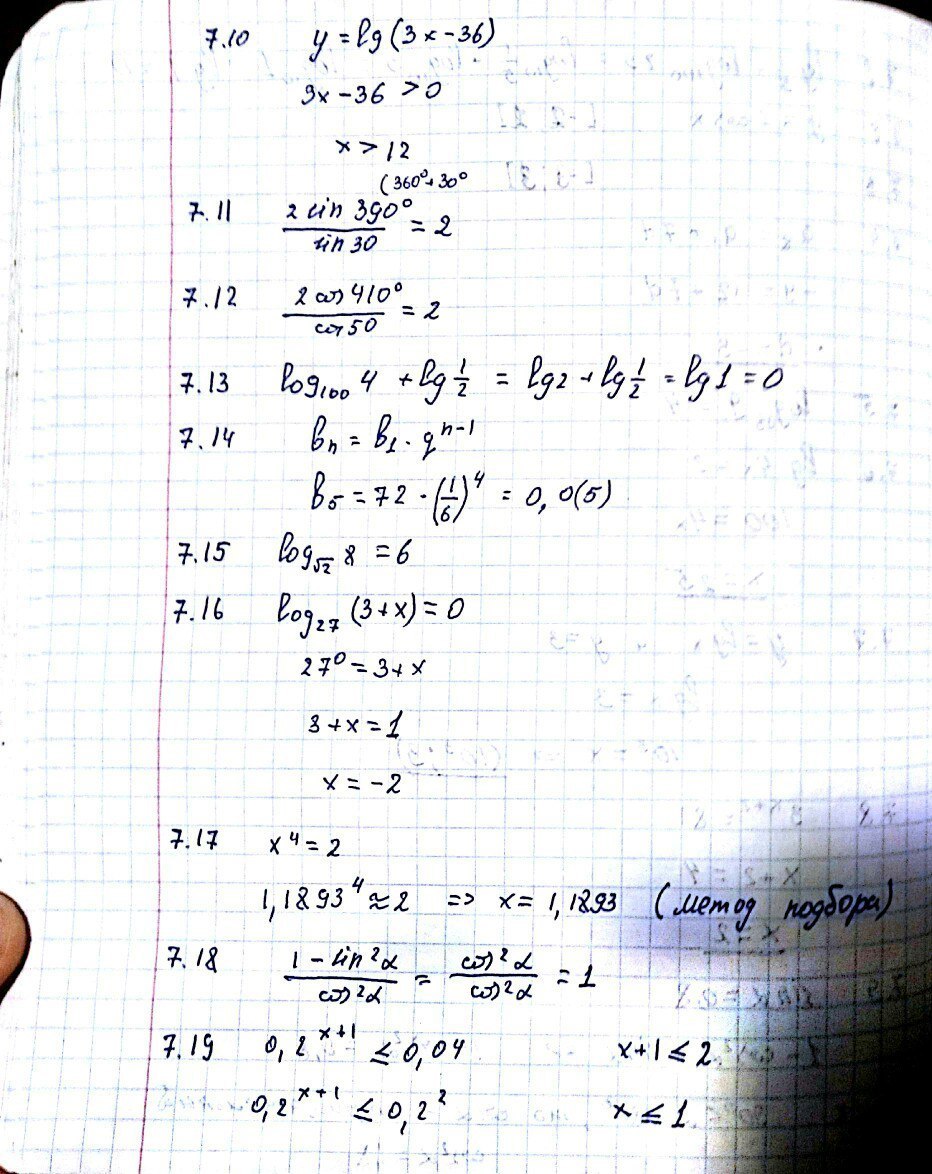 7.10 y = lg (3x - 36)
3x - 36 > 0
x > 12
(360° + 30°
7.11 2 sin 390° / sin 30 = 2
7.12 2 cos 410° / cos 50 = 2
7.13 log₁₀₀ 4 + lg 1/2 = lg 2 + lg 1/2 = lg 1 = 0
7.14 bₙ = b₁ · qⁿ⁻¹
b₅ = 72 · (1/6)⁴ = 0,0(5)
7.15 log_√2 8 = 6
7.16 log₂₇ (3 + x) = 0
27⁰ = 3 + x
3 + x = 1
x = -2
7.17 x⁴ = 2
1,1893⁴ ≈ 2 => x = 1,1893 (метод подбора)
7.18 1 - sin²α / cos²α = cos²α / cos²α = 1
7.19 0,2ˣ⁺¹ ≤ 0,04 x + 1 ≤ 2
0,2ˣ⁺¹ ≤ 0,2² x ≤ 1